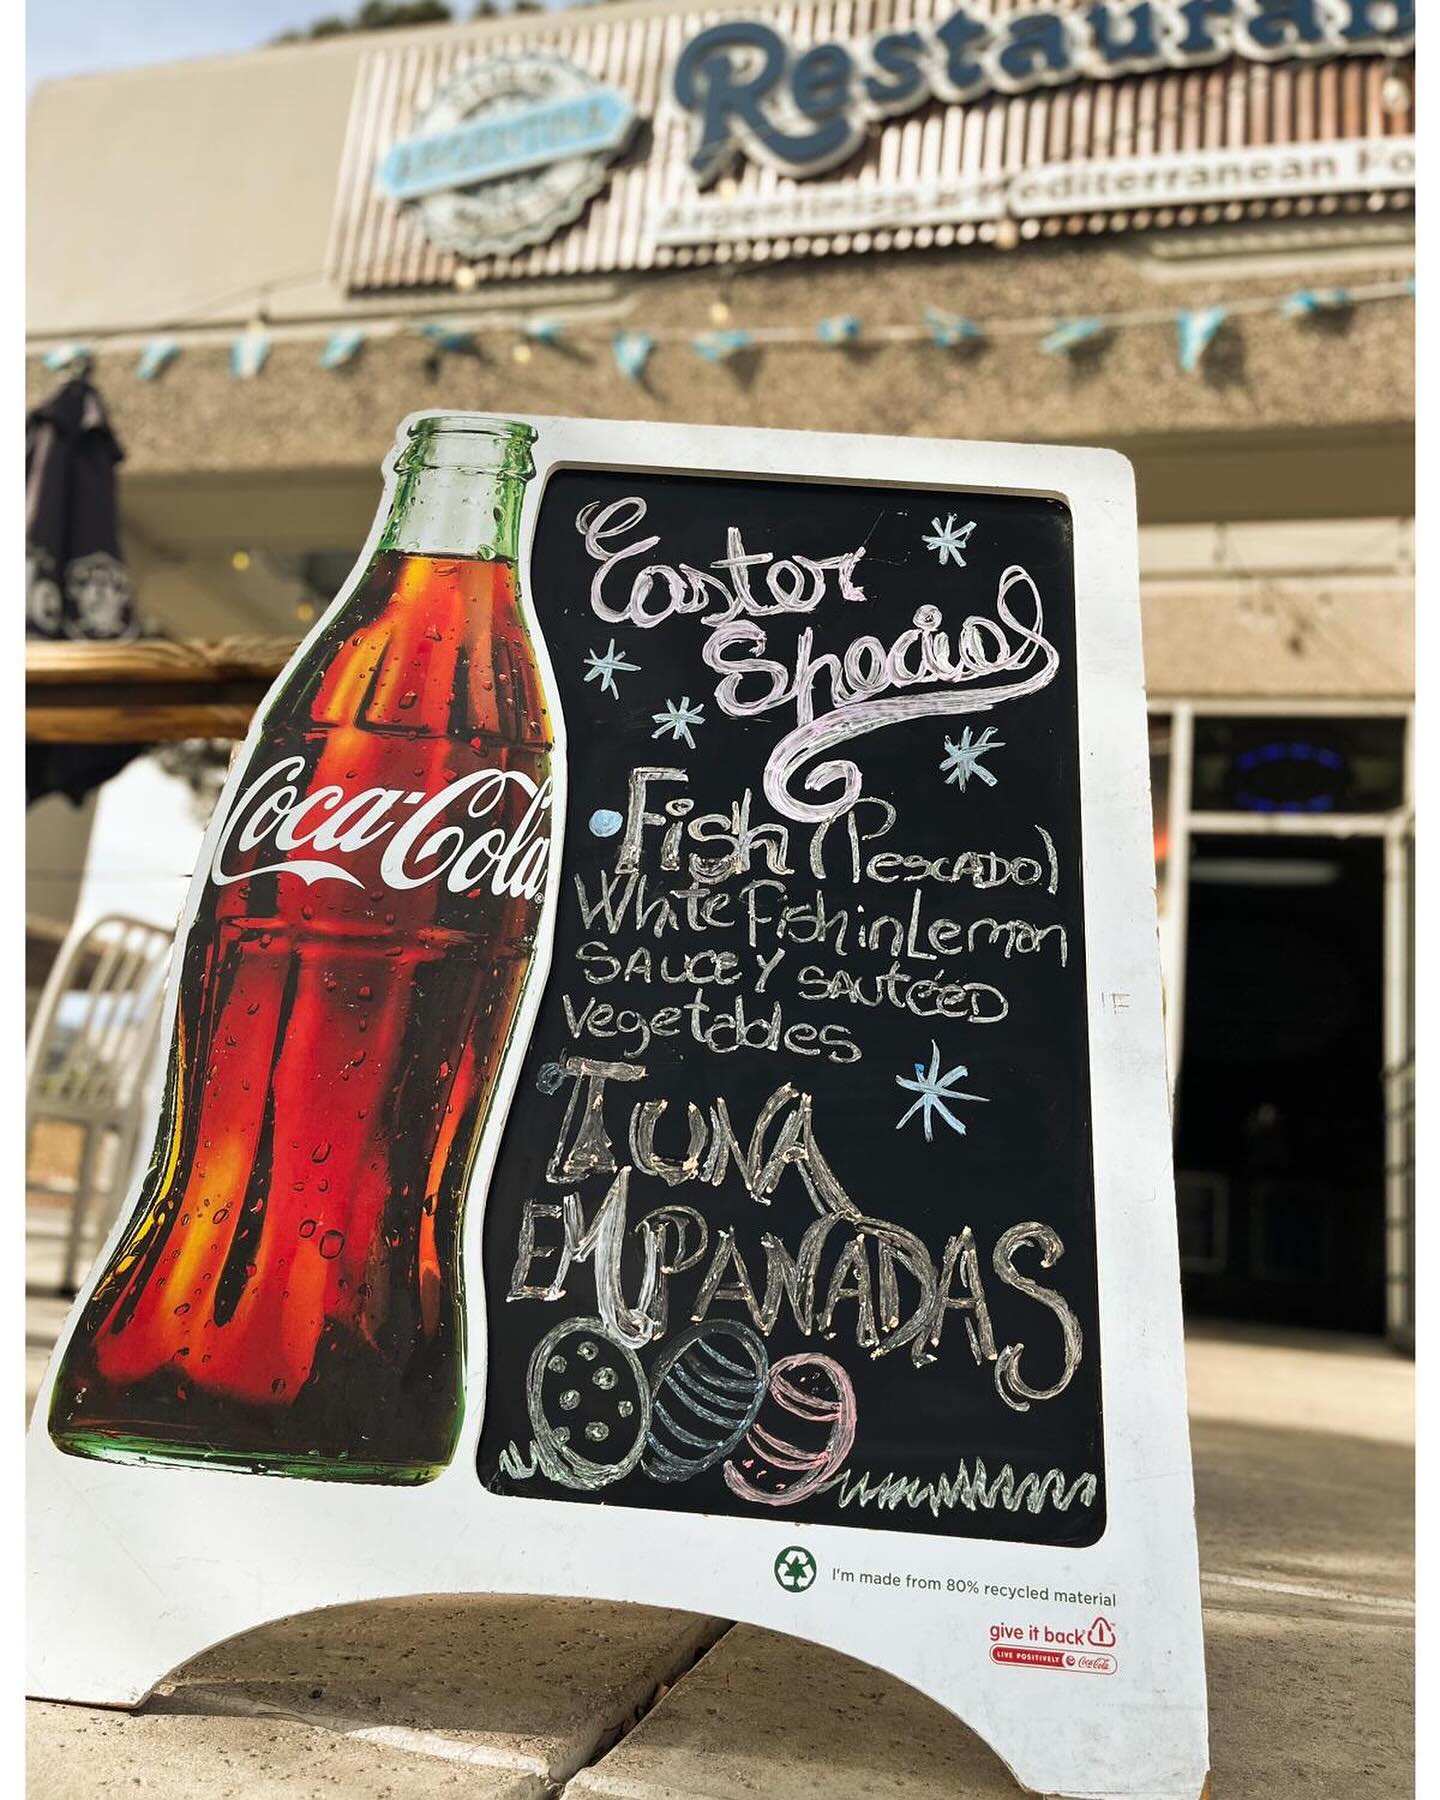 ARGENTINA
Restauran
Argentinian & Mediterranean Fo
Coca-Cola
Easter
Special
Fish (Pescado)
White Fish in Lemon
Sauce Y sautéed
vegetables
TUNA
EMPANADAS
I'm made from 80% recycled material
give it back
LIVE POSITIVELY Coca-Cola